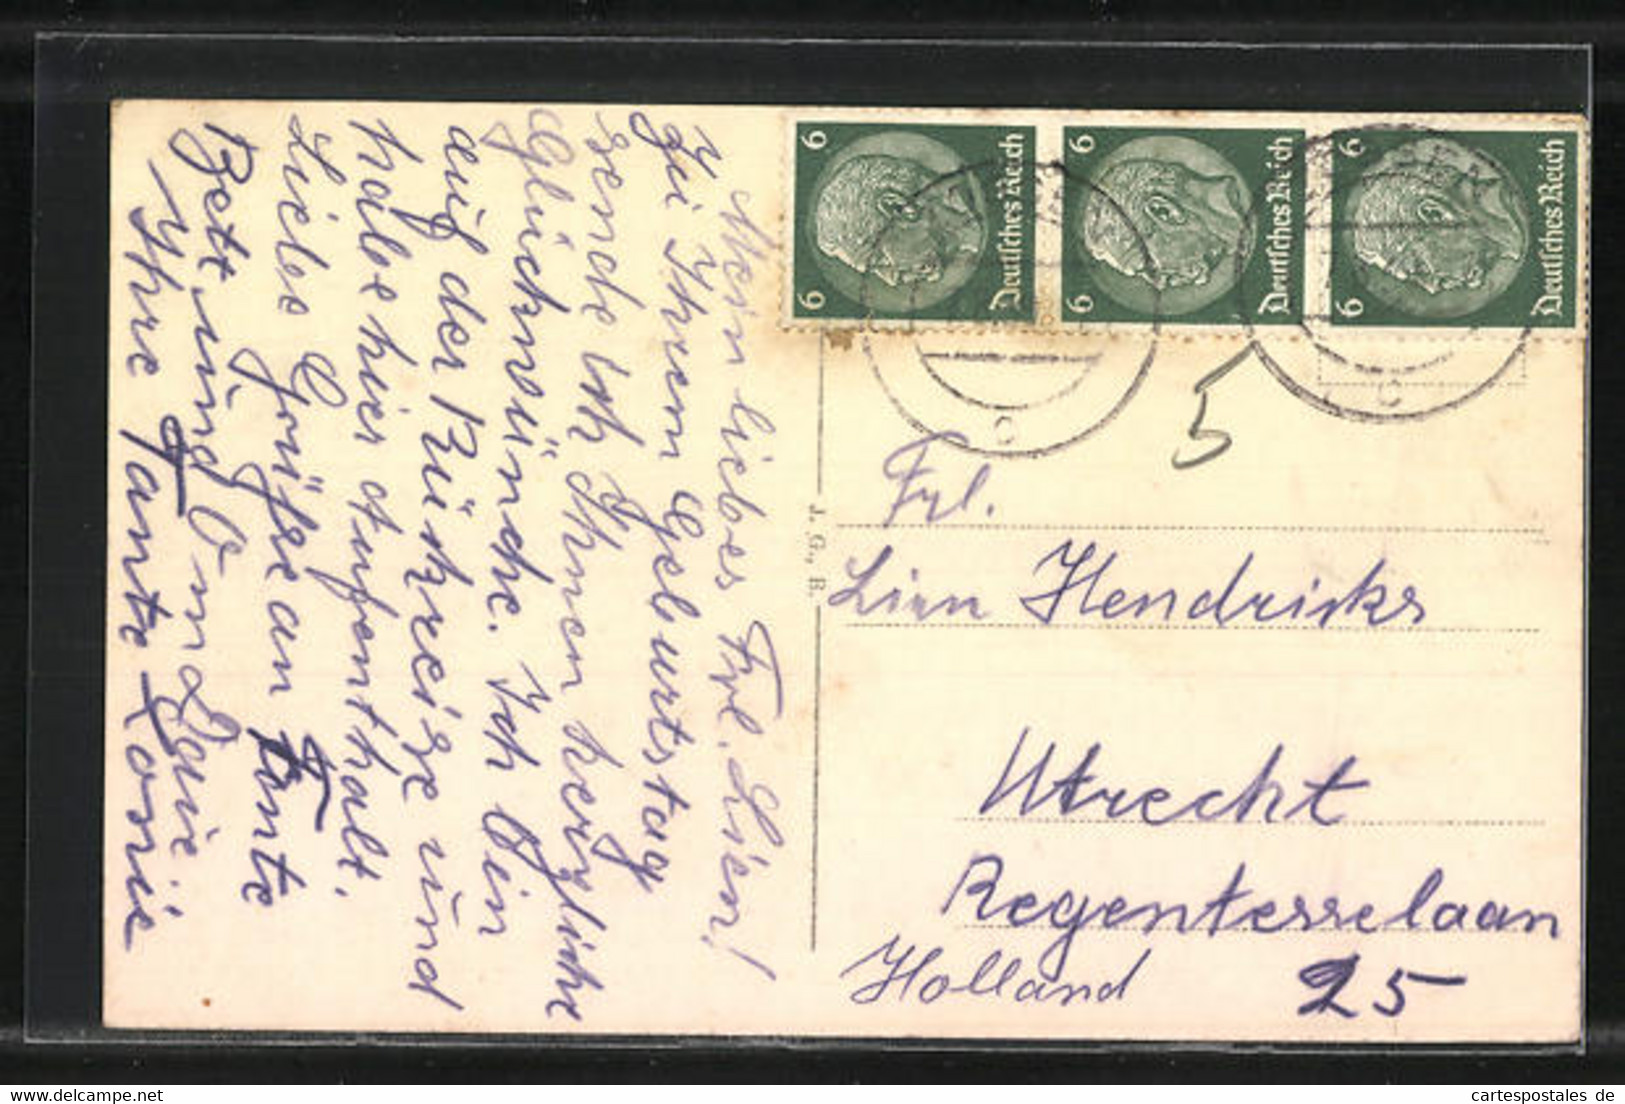 Mein liebes Frl. Lien!
Zu Ihrem Geburtstag
sende ich Ihnen herzliche
Glückwünsche. Ich bin
auf der Rückreise und
habe hier Aufenthalt.
Liebe Grüße an Tante
Bett und Omd Louie
Ihre Tante Losie
6
6
Deutsches Reich
6
6
Deutsches Reich
6
6
Deutsches Reich
c
c
5
J. G., B.
Frl.
Lien Hendricks
Utrecht
Regentesselaan
25
Holland
www.delcampe.net
cartespostales de